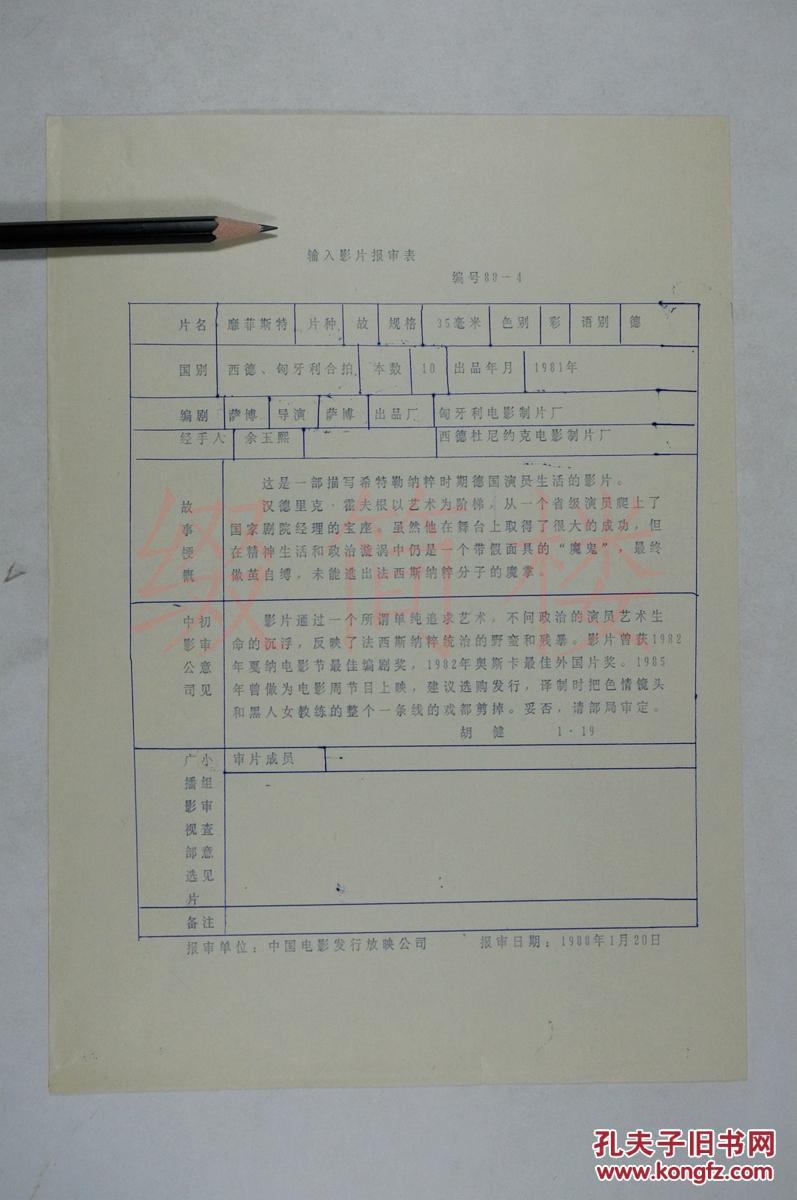 输入影片报审表
编号88-4
片名 靡菲斯特 片种 故 规格 35毫米 色别 彩 语别 德
国别 西德、匈牙利合拍 本数 10 出品年月 1981年
编剧 萨博 导演 萨博 出品厂 匈牙利电影制片厂
经手人 余玉熙 西德杜尼约克电影制片厂
故事梗概
这是一部描写希特勒纳粹时期德国演员生活的影片。
汉德里克·霍夫根以艺术为阶梯,从一个省级演员爬上了
国家剧院经理的宝座。虽然他在舞台上取得了很大的成功,但
在精神生活和政治漩涡中仍是一个带假面具的“魔鬼”,最终
做茧自缚,未能逃出法西斯纳粹分子的魔掌。
中影公司初审意见
影片通过一个所谓单纯追求艺术,不问政治的演员艺术生
命的沉浮,反映了法西斯纳粹统治的野蛮和残暴。影片曾获1982
年戛纳电影节最佳编剧奖,1982年奥斯卡最佳外国片奖。1985
年曾做为电影周节目上映,建议选购发行,译制时把色情镜头
和黑人女教练的整个一条线的戏都剪掉。妥否,请部局审定。
胡健 1·19
广播影视部选片小组审查意见
审片成员
备注
报审单位:中国电影发行放映公司 报审日期:1988年1月20日
缀简楼
孔夫子旧书网
www.kongfz.com